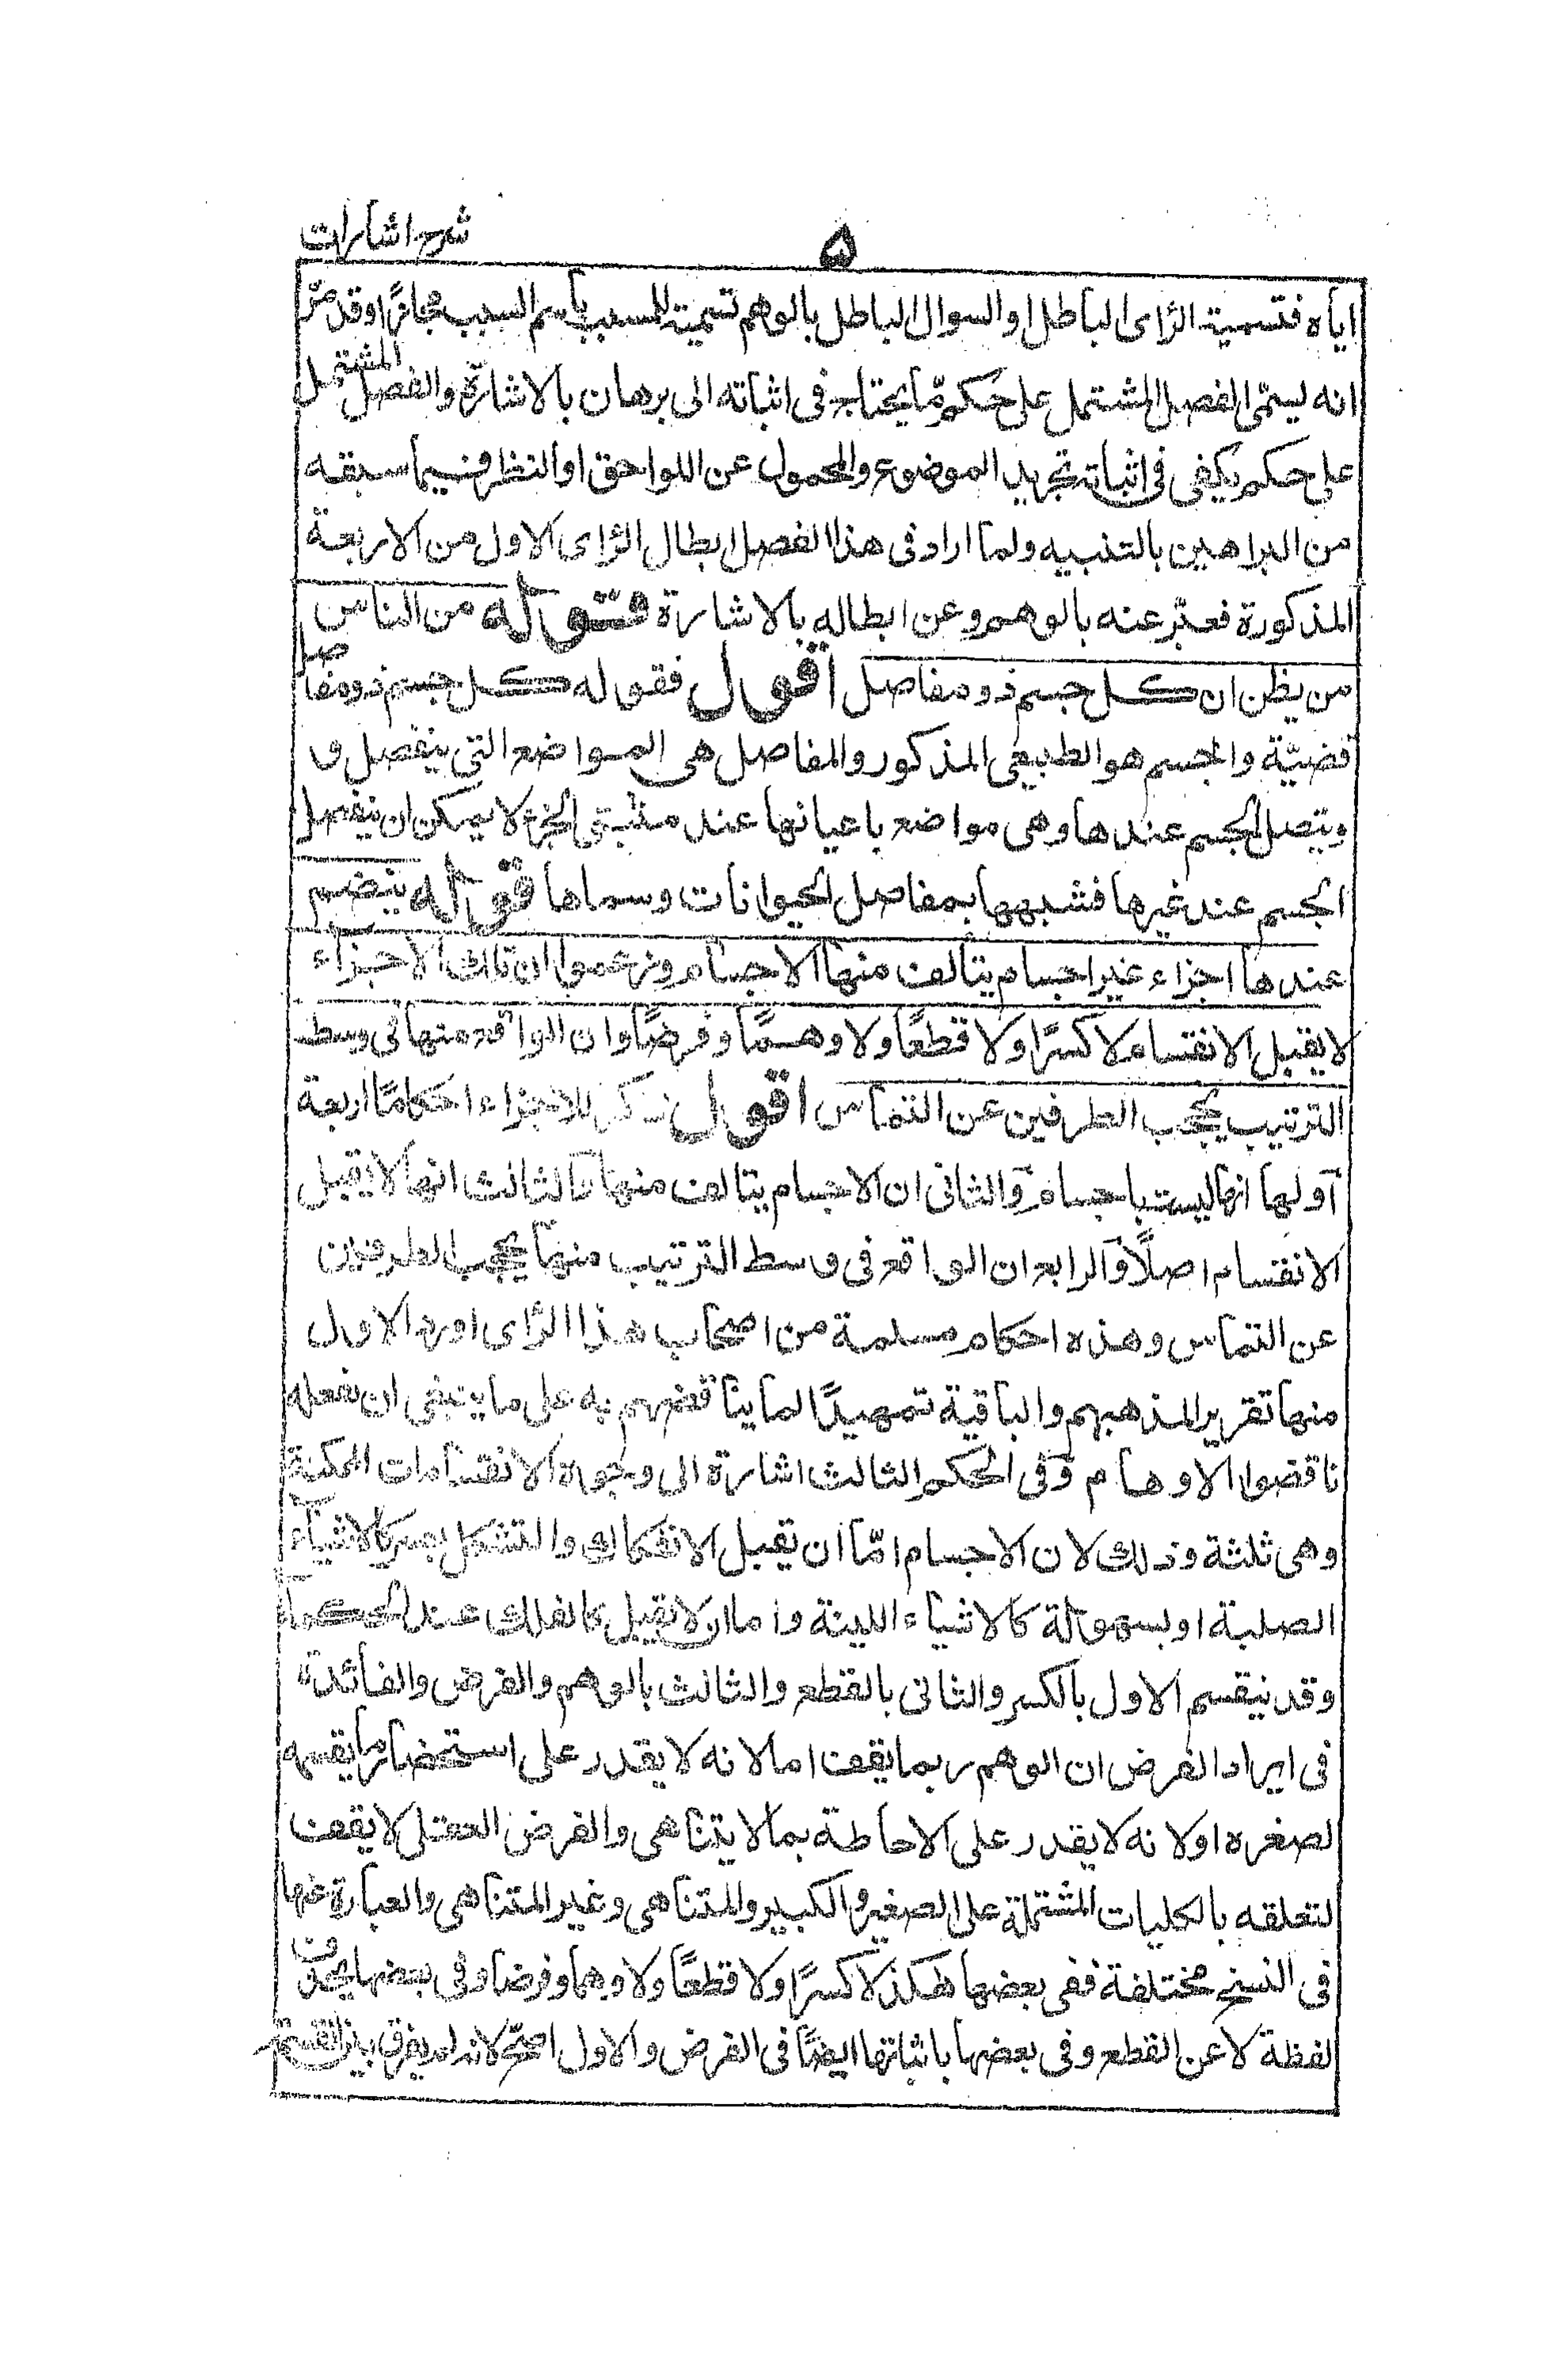 شرح اشارات
۵
اياه فتسمية الرّاى الباطل او السوال الباطل بالوهم تسمية للمسبب باسم السبب مجازًا وقد مرّ
انه يسمّى الفصل المشتمل على حكم مّا يحتاج فى اثباته الى برهان بالاشارة والفصل المشتمل
على حكم يكفى فى اثباته تجريد الموضوع والمحمول عن اللواحق او النظر فيما سبقه
من البراهين بالتنبيه ولما اراد فى هذا الفصل ابطال الرّاى الاول من الاربعة
المذكورة فعبّر عنه بالوهم وعن ابطاله بالاشارة قوله من الناس
من يظن ان كل جسم ذو مفاصل اقول فقوله كل جسم ذو مفاصل
قضيّة والجسم هو الطبيعى المذكور والمفاصل هى المواضع التى ينفصل و
ويتصل الجسم عندها وهى مواضع باعيانها عند مثبتى الجزء لا يمكن ان ينفصل
الجسم عند غيرها فشبهها بمفاصل الحيوانات وسماها قوله ينضم
عندها اجزاء غير اجسام يتألف منها الاجسام وزعموا ان تلك الاجزاء
لا يقبل الانقسام لا كسرًا ولا قطعًا ولا وهمًا وفرضًا وان الواقع منها فى وسط
الترتيب يحجب الطرفين عن التماس اقول ذكر للاجزاء احكامًا اربعة
آولها انها ليست باجسام وَالثانى ان الاجسام يتالف منها وَالثالث انها لا يقبل
الانقسام اصلًا وَالرابع ان الواقع فى وسط الترتيب منها يحجب الطرفين
عن التماس وهذه احكام مسلمة من اصحاب هذا الرّاى اورد الاول
منها تقرير المذهبهم والباقية تمهيدًا لما يناقضهم به على ما ينبغى ان نفعله
ناقضوا الاوهام وَفى الحكم الثالث اشارة الى وجوه الانقسامات الممكنة
وهى ثلثة وذلك لان الاجسام امّا ان تقبل الانفكاك والتشكل بعسر كالاشياء
الصلبة او بسهولة كالاشياء اللينة واما ان لا تقبل كالفلك عند الحكماء
وقد ينقسم الاول بالكسر والثانى بالقطع والثالث بالوهم والفرض والفائدة
فى ايراد الفرض ان الوهم ربما يقف اما لانه لا يقدر على استحضار ما يقسمه
لصغره او لانه لا يقدر على الاحاطة بما لا يتناهى والفرض العقلى لا يقف
لتعلقه بالكليات المشتملة على الصغير والكبير والمتناهى وغير المتناهى والعبارة عنها
فى النسخ مختلفة ففى بعضها هكذا لا كسرًا ولا قطعًا ولا وهما وفرضا وفى بعضها بحذف
لفظة لا عن القطع وفى بعضها باثباتها ايضًا فى الفرض والاول اصحّ لانه لم يفرق بين القسمة